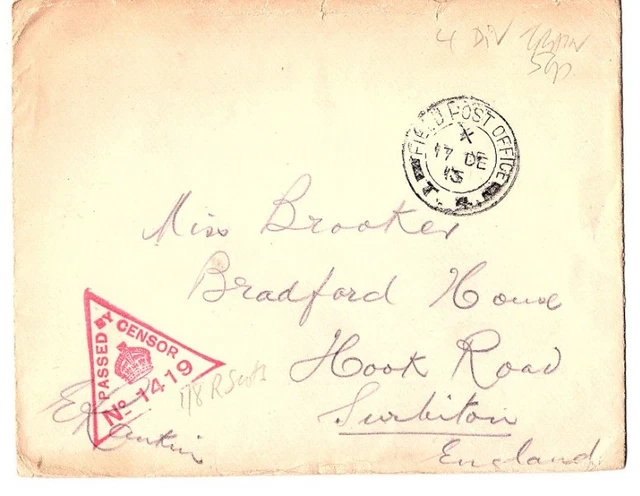 4 DIV TRAIN
50p
FIELD POST OFFICE
*
17 DE
15
T. 4.
Miss Brooker
Bradford House
Hook Road
Surbiton
England
PASSED BY CENSOR
No 1419
1/8 R Scots